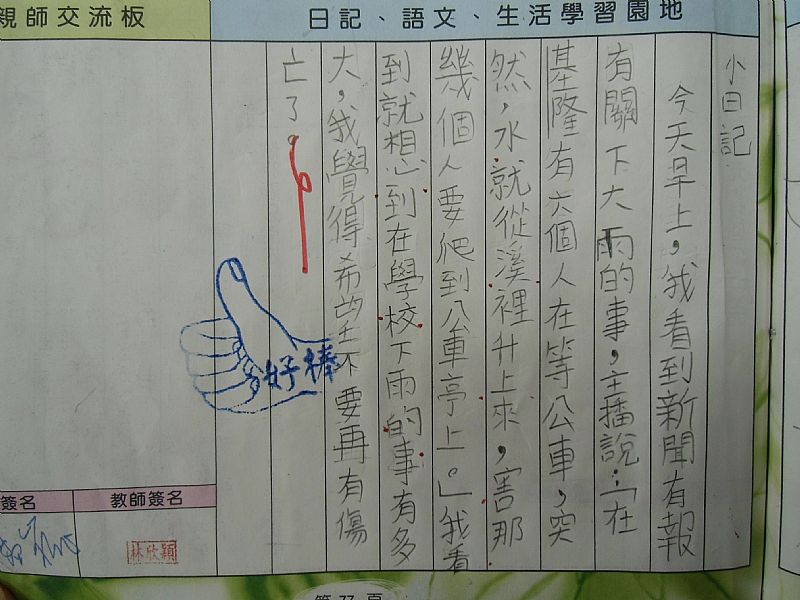 親師交流板
日記、語文、生活學習園地
小日記
今天早上，我看到新聞有報
有關下大雨的事，主播說：「在
基隆有六個人在等公車，突
然，水就從溪裡升上來，害那
幾個人要爬到公車亭上。」我看
到就想到在學校下雨的事有多
大，我覺得希望不要再有傷
亡了。
好棒
簽名
教師簽名
林欣穎
第77頁